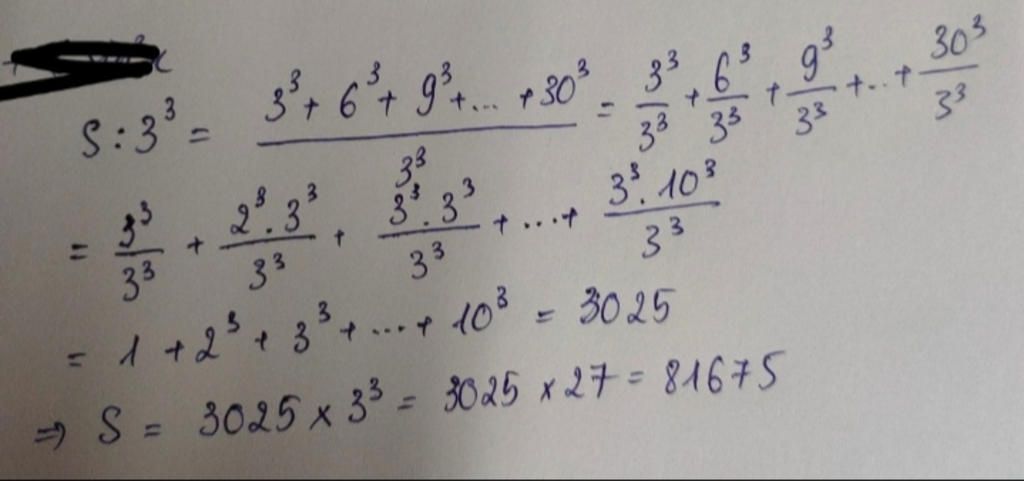 S : 3³ = (3³ + 6³ + 9³ + ... + 30³)/3³ = 3³/3³ + 6³/3³ + 9³/3³ + ... + 30³/3³
= 3³/3³ + (2³ . 3³)/3³ + (3³ . 3³)/3³ + ... + (3³ . 10³)/3³
= 1 + 2³ + 3³ + ... + 10³ = 3025
⇒ S = 3025 × 3³ = 3025 × 27 = 81675